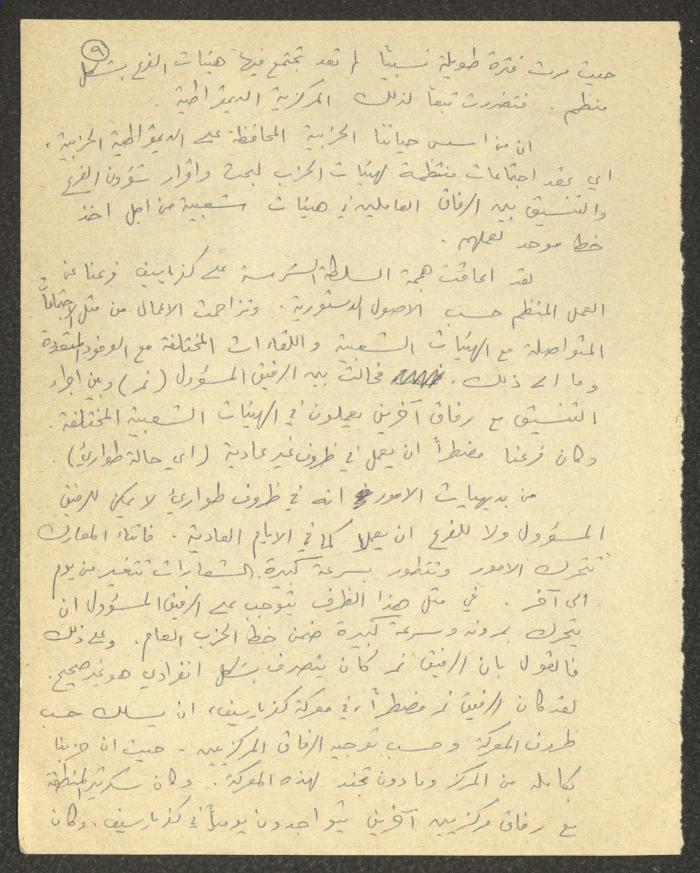 ٩
حيث مرت فترة طويلة نسبياً لم تعد تجتمع فيها هيئات الفرع بشكل
منظم. فتضررت تبعاً لذلك المركزية الديمقراطية.
ان من اسس حياتنا الحزبية المحافظة على الديمقراطية الحزبية،
اي عقد اجتماعات منتظمة لهيئات الحزب لبحث واقرار شؤون الفرع
والتنسيق بين الرفاق العاملين في هيئات شعبية من اجل اخذ
خط موحد لعملهم.
لقد اعاقت هجمة السلطة الشرسة على كفرياسيف فرعنا عن
العمل المنظم حسب الاصول الدستورية. وتزاحمت الاعمال من مثل الاجتماعات
المتواصلة مع الهيئات الشعبية واللقاءات المختلفة مع الوفود المتعددة
وما الى ذلك. فحالت بين الرفيق المسؤول (نمر) وبين اجراء
التنسيق مع رفاق آخرين يعملون في الهيئات الشعبية المختلفة.
وكان فرعنا مضطراً ان يعمل في ظروف غير عادية (اي حالة طوارئ).
من بديهيات الامور انه في ظروف طوارئ لا يمكن للرفيق
المسؤول ولا للفرع ان يعملا كما في الايام العادية. فاثناء المعارك
تتحرك الامور وتتطور بسرعة كبيرة. الشعارات تتغير من يوم
الى آخر. في مثل هذا الظرف يتوجب على الرفيق المسؤول ان
يتحرك بمرونة وسرعة كبيرة ضمن خط الحزب العام. وعلى ذلك
فالقول بان الرفيق نمر كان يتصرف بشكل انفرادي هو غير صحيح.
لقد كان الرفيق نمر مضطراً، في معركة كفرياسيف، ان يسلك حسب
ظروف المعركة وحسب توجيه الرفاق المركزيين. حيث ان حزبنا
بكامله من المركز وما دون تجند لهذه المعركة. وكان سكرتير المنطقة
مع رفاق مركزيين آخرين يتواجدون يومياً في كفرياسيف. وكان